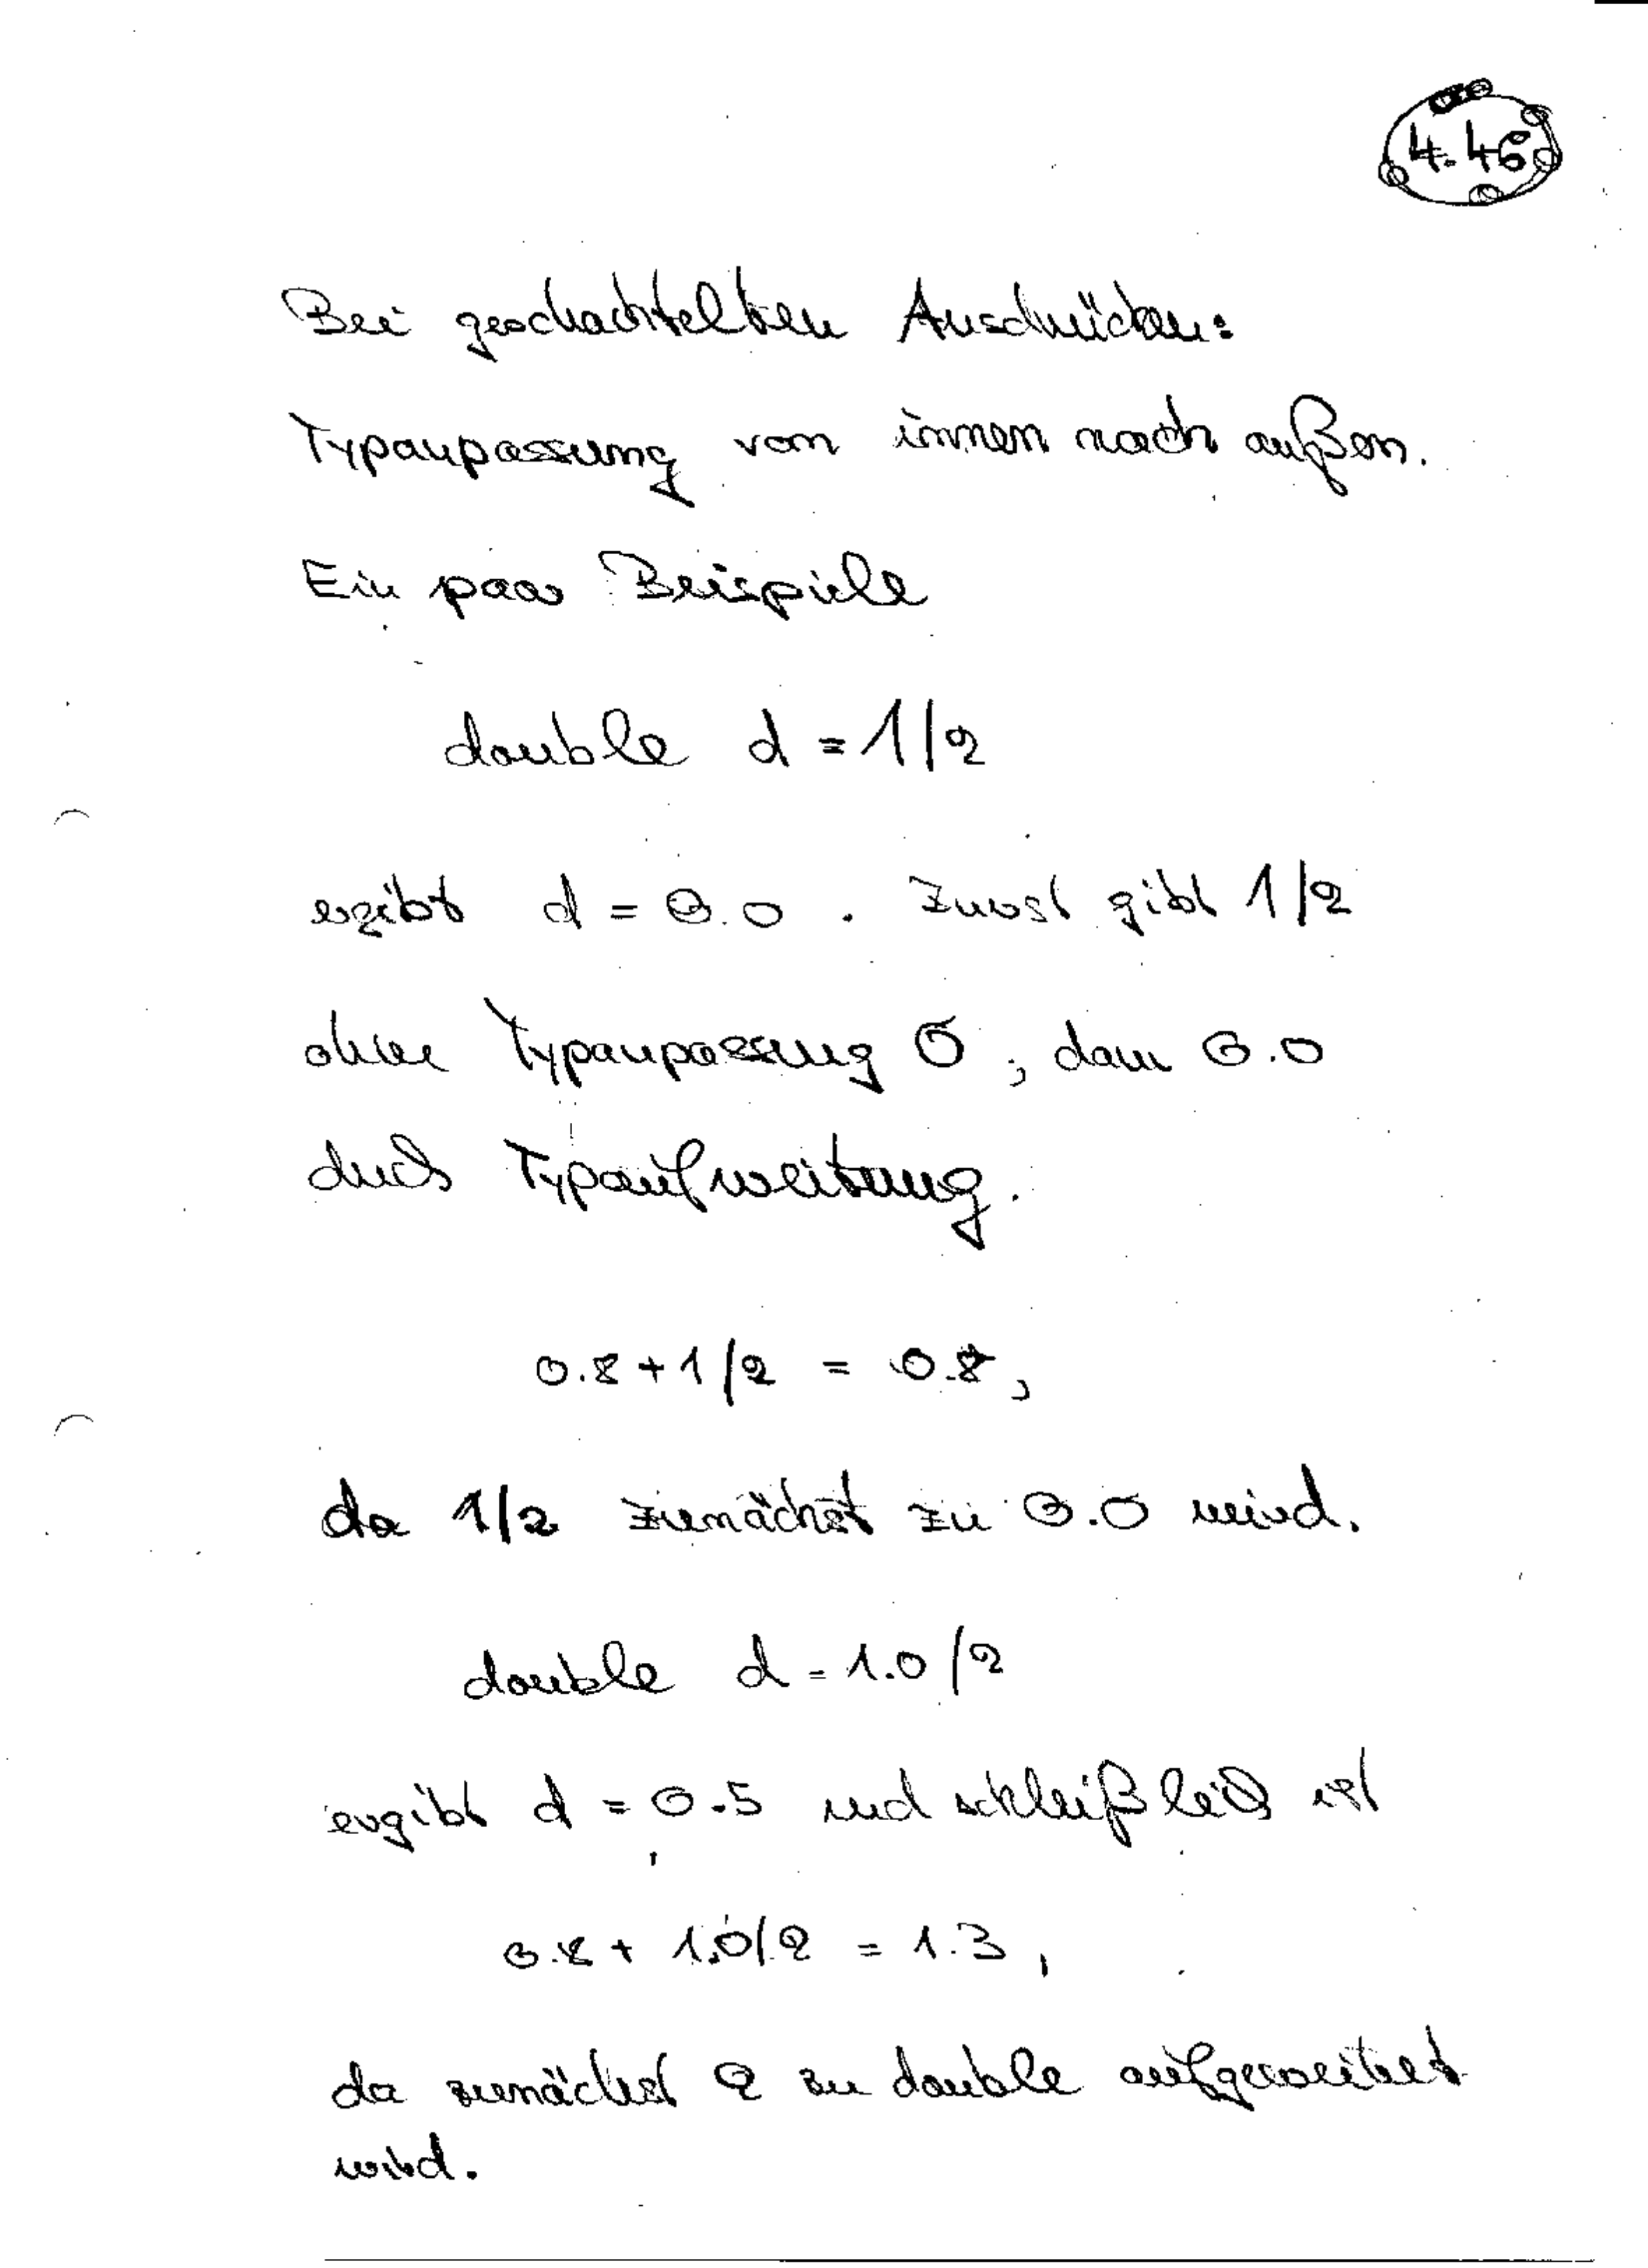 4.46
Bei geschachtelten Ausdrücken:
Typanpassung von innen nach außen.
Ein paar Beispiele
double d = 1/2
ergibt d = 0.0 . Zuerst gibt 1/2
ohne Typanpassung 0 ; dann 0.0
durch Typaufweitung.
0.8 + 1/2 = 0.8 ,
da 1/2 zunächst zu 0.0 wird.
double d = 1.0/2
ergibt d = 0.5 und schließlich ist
0.8 + 1.0/2 = 1.3 ,
da zunächst 2 zu double aufgeweitet
wird.